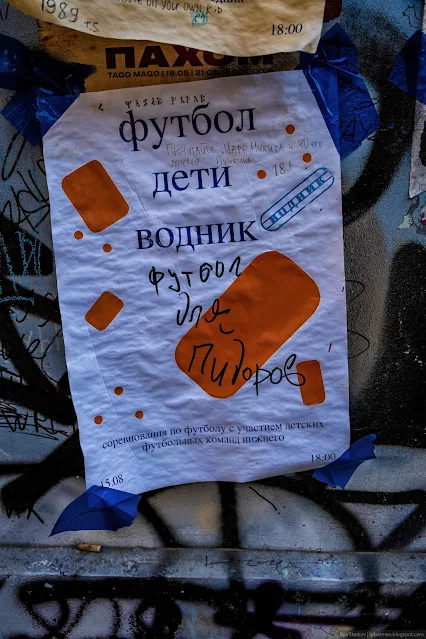 1989 +5
18:00
ПАХОМ
TAGO MAGO | 18.05 | 21
футбол
18+
дети
водник
водник
футбол
для
пидоров
соревнования по футболу с участием детских
футбольных команд нижнего
15.08
18:00